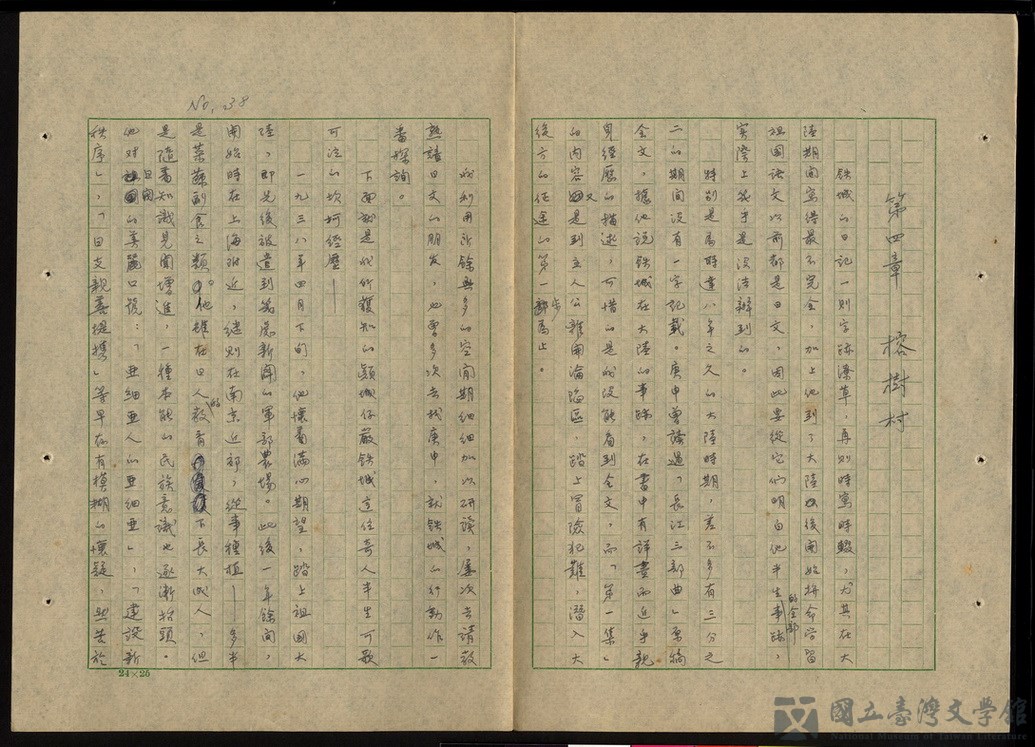 第四章　榕樹村
鉄城的日記一則字跡潦草，再則時寫時輟，尤其在大
陸期間寫得最不完全，加上他到了大陸以後開始將命字習
祖国語文以前都是日文，因此要從它们明白他半生事跡的全部，
实際上幾乎是沒法辦到的。
特别是為時達八年之久的大陸時期，差不多有三分之
二的期间没有一字記載。庚申曾讀過「長江三部曲」原稿
全文，據他说鉄城在大陸的事跡，在書中有詳盡而近乎親
身經歷的描述，可惜的是我没能看到全文，而「第一集」
的内容又是到主人公離開淪陷区，踏上冒險犯難，潛入大
後方的征途的第一步為止。
No, 238
我利用所餘無多的空閒期細細加以研讀，屡次去請教
熟諳日文的朋友，也曾多次去找庚申，就鉄城的行動作一
番探詢。
下面就是我所獲知的顔城仔嚴鉄城这位奇人半生可歌
可泣的坎坷經歷——
一九三八年四月下旬，他懷着满心期望，踏上祖国大
陸，即先後被遣到各處新闢的軍部農場。此後一年餘间，
開始時在上海附近，継則在南京近郊，從事種植——多半
是菜蔬副食之類。他雖在日人的教育下長大成人，但
是隨着知識見聞增進，一種本能的民族意識也逐漸抬頭。
他对日閥的美麗口號：「亜細亜人的亜細亜」，「建設新
秩序」，「日支親善提携」等早存有模糊的懷疑，無奈於
24×25
國立臺灣文學館
National Museum of Taiwan Literature